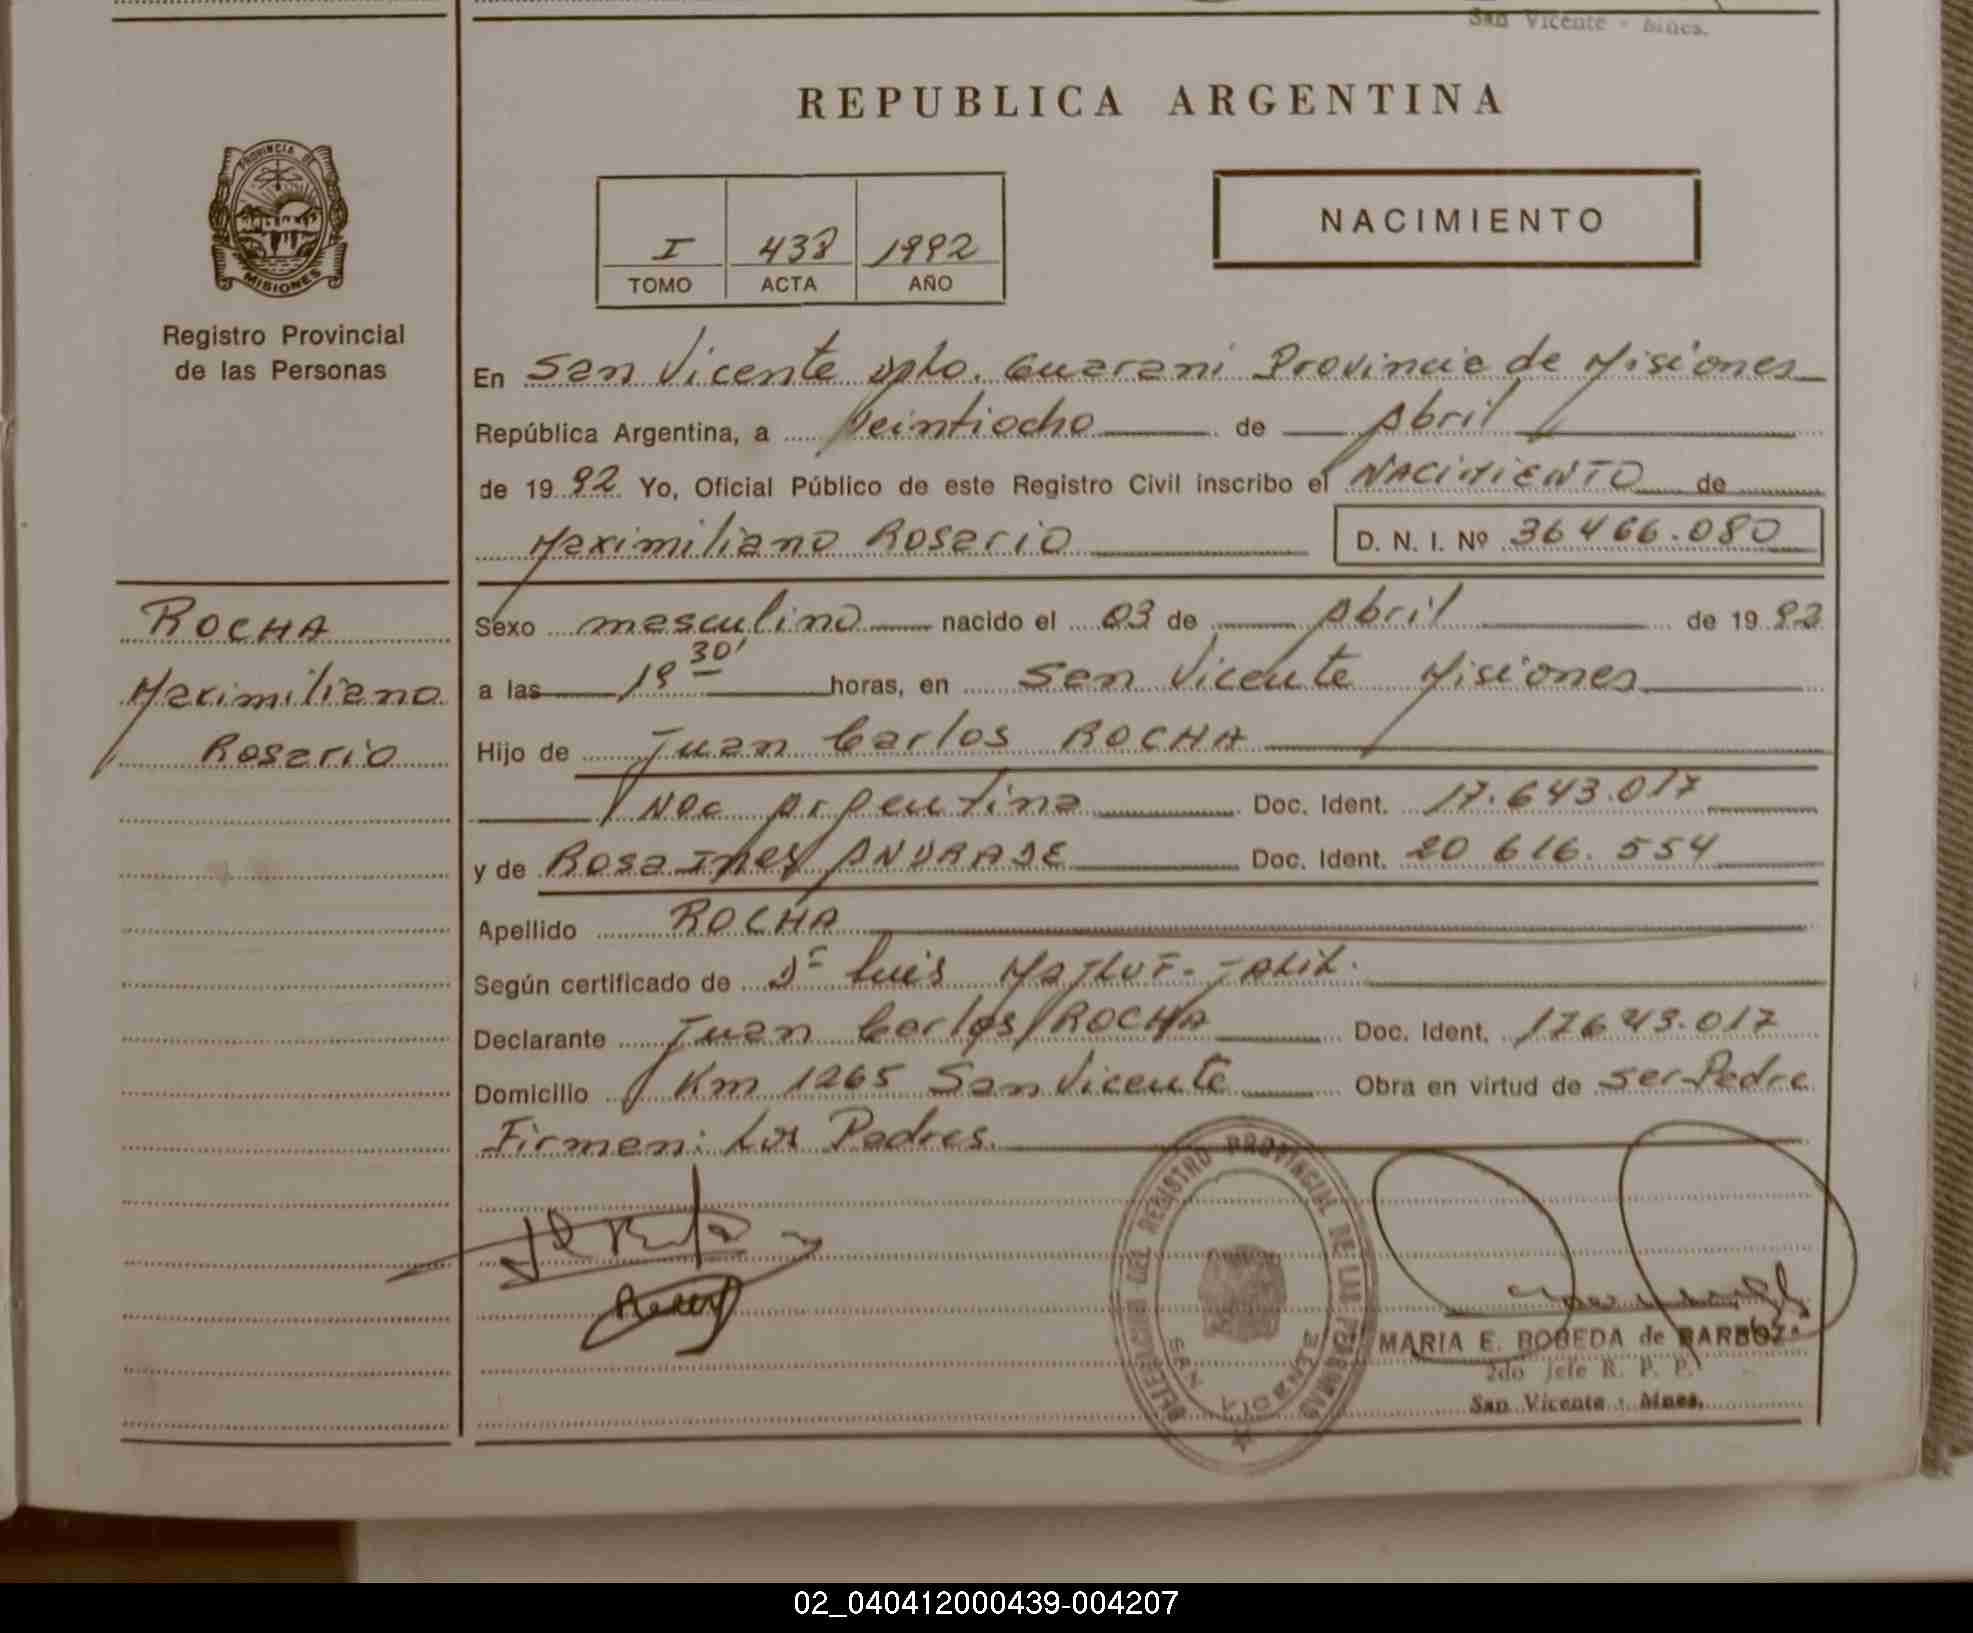 San Vicente - Mnes.
REPUBLICA ARGENTINA
PROVINCIA DE
MISIONES
Registro Provincial
de las Personas
NACIMIENTO
I 438 1992
TOMO ACTA AÑO
En San Vicente Dpto. Guarani Provincia de Misiones
República Argentina, a Veintiocho de Abril
de 1992 Yo, Oficial Público de este Registro Civil inscribo el NACIMIENTO de
Maximiliano Rosario D. N. I. Nº 36466.080
ROCHA
Maximiliano
Rosario
Sexo masculino nacido el 03 de Abril de 1992
a las 30' horas, en San Vicente Misiones
Hijo de Juan Carlos ROCHA
Nac Argentina Doc. Ident. 17.643.017
y de Rosa Ines ANDRADE Doc. Ident. 20 616.554
Apellido ROCHA
Según certificado de Dr Luis
Declarante Juan Carlos ROCHA Doc. Ident. 17643.017
Domicilio Km 1265 San Vicente Obra en virtud de ser Padre
Firman: Los Padres.
DELEGACION DEL REGISTRO PROVINCIAL DE LAS PERSONAS
SAN VICENTE
MARIA E. BOBEDA de BARBOZA
2do Jefe R. P. P.
San Vicente - Mnes.
02_040412000439-004207